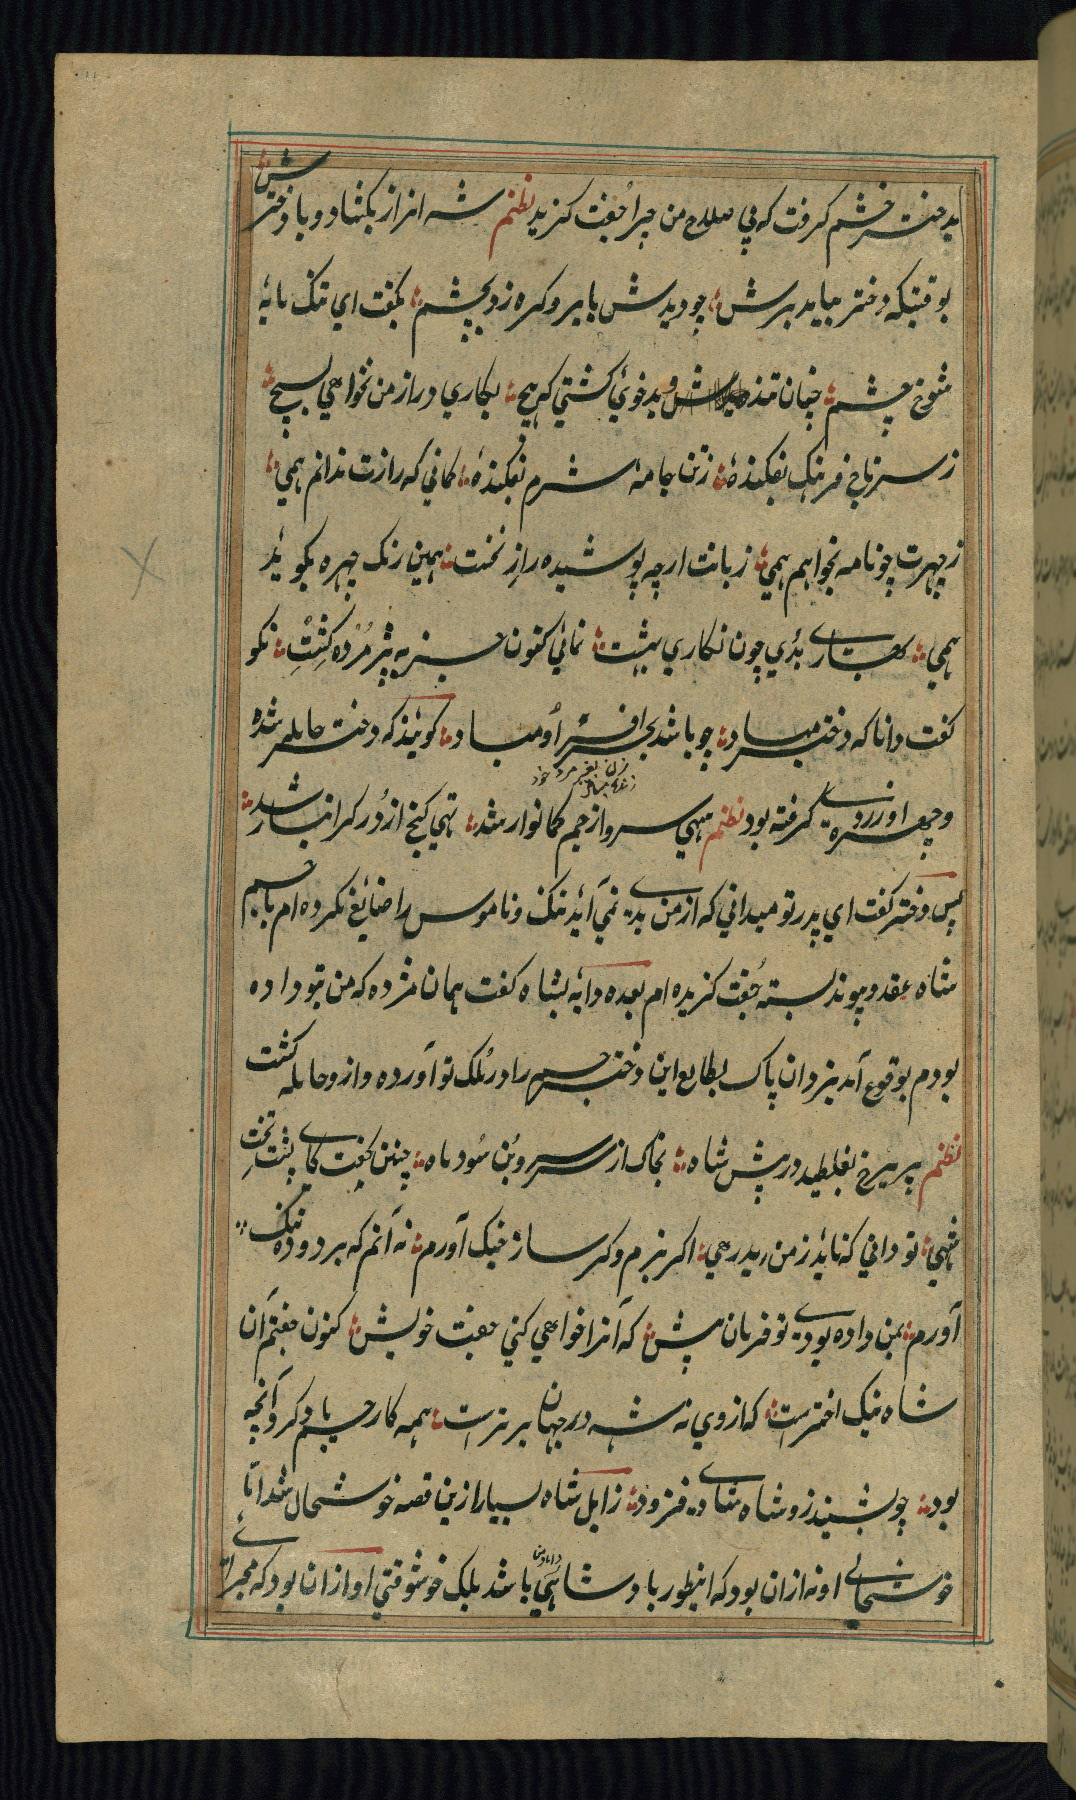 بدختر خشم کرفت که بی صلاح من چرا جفت کزید نظم شه انراز بکشاد و با دخترش
بوقتیکه دختر بیاید برش چو دیدش بابرو کره زد بچشم بکفت ای تنک مایهٔ
شوخ چشم چنان تند و بدخوی کشتی که هیچ بکاری در از من نخواهی بسیج
ز سر تاج فرهنک بفکندهٔ ز تن جامهٔ شرم بفکندهٔ کمانی که رازت ندانم همی
ز چهرت چو نامه نخوانم همی زبانت ارچه پوشیده راز نخت همین رنک چهره بکوید
همی بهاری بدی چون نکاری ببیشت نمائی کنون خیره پژمرده کشت نکو
کفت دانا که دختر مباد چو باشد بجز افسر او مباد کویند که دخت حامله شده
و چهره او زردی کرفته بود نظم سهی سرو از خم کمانوار شد تهی کنج از در کرانبار شد
پس دختر کفت ای پدر تو میدانی که از من بدی نمی آید ننک و ناموس را ضائع نکرده ام با جم
شاه عقد و پیوند بسته جفت کزیده ام بعده دایه بشاه کفت همان مژده که من بتو داده
بودم بوقوع آمد یزدان پاک بطالع این دختر جم را در ملک تو آورده و ازو حامله کشت
نظم پریرخ بغلطید در پیش شاه بخاک از سر سرو بن سود ماه چنین کفت کای پشت تخت
شهی تو دانی که ناید ز من بد رهی اکر بزم و کر ساز جنک آورم نه آنم که بر دوده ننک
آورم بمن داده بودی تو فرمان پیش که آنرا خواهی کنی جفت خویش کنون جفتم آن
شاه نیک اخترست که از وی نه شه در جهان برترست همه کار جم یاد کرد آنچه
بود چو بشنید زو شاه شادی فزود زابل شاه بسیار ازین قصه خوشحال شد امّا
خوشحالی او نه ازان بود که اینطور بادشاهی داماد من باشد بلک خوشوقتی او ازان بود که مجرای